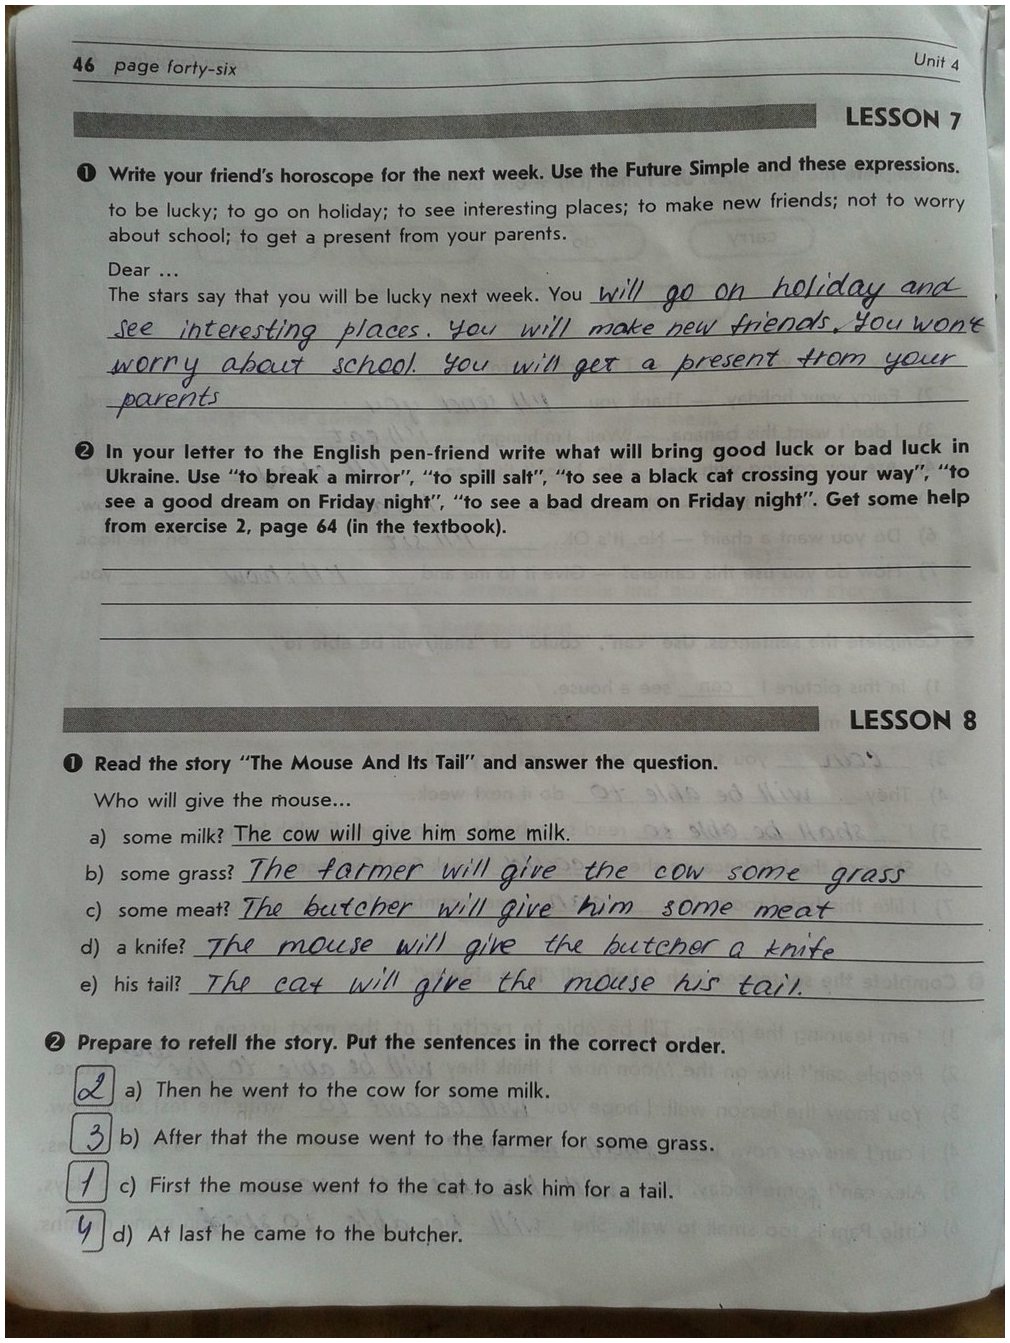 46 page forty-six
Unit 4
LESSON 7
1 Write your friend's horoscope for the next week. Use the Future Simple and these expressions.
to be lucky; to go on holiday; to see interesting places; to make new friends; not to worry
about school; to get a present from your parents.
Dear ...
The stars say that you will be lucky next week. You will go on holiday and
see interesting places. You will make new friends. You won't
worry about school. You will get a present from your
parents
2 In your letter to the English pen-friend write what will bring good luck or bad luck in
Ukraine. Use "to break a mirror", "to spill salt", "to see a black cat crossing your way", "to
see a good dream on Friday night", "to see a bad dream on Friday night". Get some help
from exercise 2, page 64 (in the textbook).
LESSON 8
1 Read the story "The Mouse And Its Tail" and answer the question.
Who will give the mouse...
a) some milk? The cow will give him some milk.
b) some grass? The farmer will give the cow some grass
c) some meat? The butcher will give him some meat
d) a knife? The mouse will give the butcher a knife
e) his tail? The cat will give the mouse his tail.
2 Prepare to retell the story. Put the sentences in the correct order.
2 a) Then he went to the cow for some milk.
3 b) After that the mouse went to the farmer for some grass.
1 c) First the mouse went to the cat to ask him for a tail.
4 d) At last he came to the butcher.